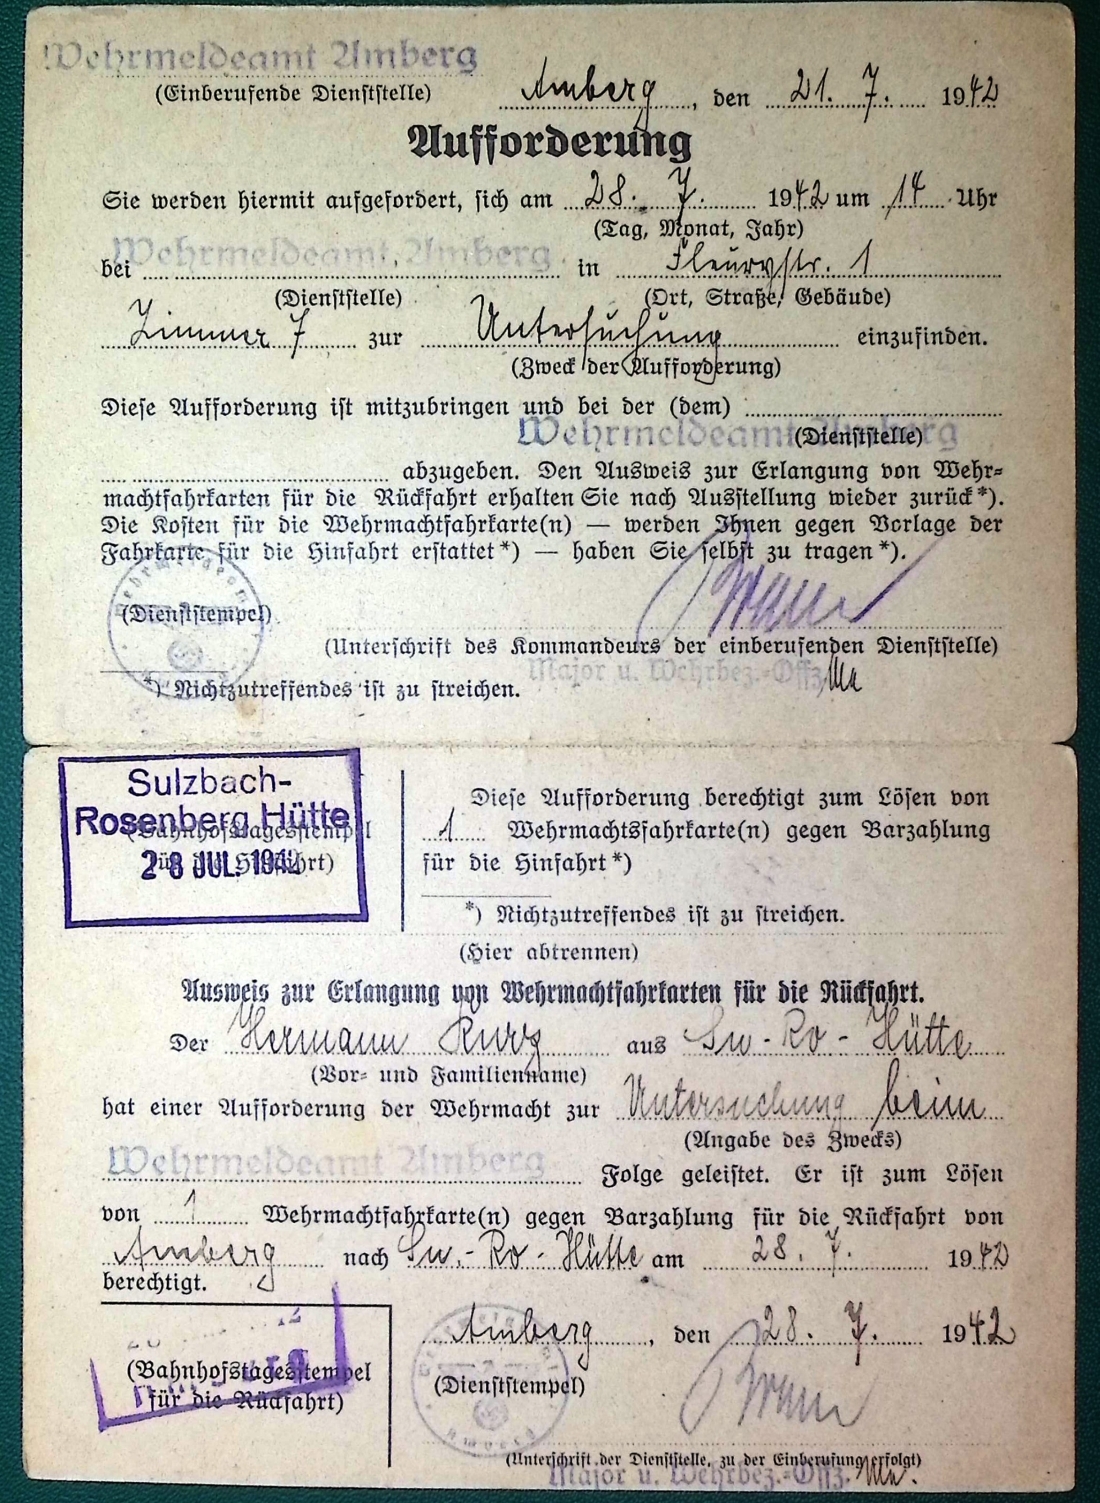 Wehrmeldeamt Amberg
(Einberufende Dienststelle)
Amberg, den 21. 7. 1942
Aufforderung
Sie werden hiermit aufgefordert, sich am 28. 7. 1942 um 14 Uhr
(Tag, Monat, Jahr)
bei Wehrmeldeamt Amberg in Fleurystr. 1
(Dienststelle) (Ort, Straße, Gebäude)
Zimmer 7 zur Untersuchung einzufinden.
(Zweck der Aufforderung)
Diese Aufforderung ist mitzubringen und bei der (dem)
Wehrmeldeamt Amberg
(Dienststelle)
abzugeben. Den Ausweis zur Erlangung von Wehr-
machtfahrkarten für die Rückfahrt erhalten Sie nach Ausstellung wieder zurück*).
Die Kosten für die Wehrmachtfahrkarte(n) — werden Ihnen gegen Vorlage der
Fahrkarte für die Hinfahrt erstattet*) — haben Sie selbst zu tragen*).
(Dienststempel)
(Unterschrift des Kommandeurs der einberufenden Dienststelle)
Major u. Wehrbez.-Offz.
*) Nichtzutreffendes ist zu streichen.
Sulzbach-
Rosenberg Hütte
28 JUL. 1942
(Bahnhofstagesstempel
für die Hinfahrt)
Diese Aufforderung berechtigt zum Lösen von
1 Wehrmachtsfahrkarte(n) gegen Barzahlung
für die Hinfahrt*)
*) Nichtzutreffendes ist zu streichen.
(Hier abtrennen)
Ausweis zur Erlangung von Wehrmachtfahrkarten für die Rückfahrt.
Der Hermann Kurz aus Su-Ro-Hütte
(Vor- und Familienname)
hat einer Aufforderung der Wehrmacht zur Untersuchung beim
(Angabe des Zwecks)
Wehrmeldeamt Amberg Folge geleistet. Er ist zum Lösen
von 1 Wehrmachtfahrkarte(n) gegen Barzahlung für die Rückfahrt von
Amberg nach Su.-Ro-Hütte am 28. 7. 1942
berechtigt.
Amberg, den 28. 7. 1942
(Bahnhofstagesstempel
für die Rückfahrt)
(Dienststempel)
(Unterschrift der Dienststelle, zu der Einberufung erfolgt)
Major u. Wehrbez.-Offz.